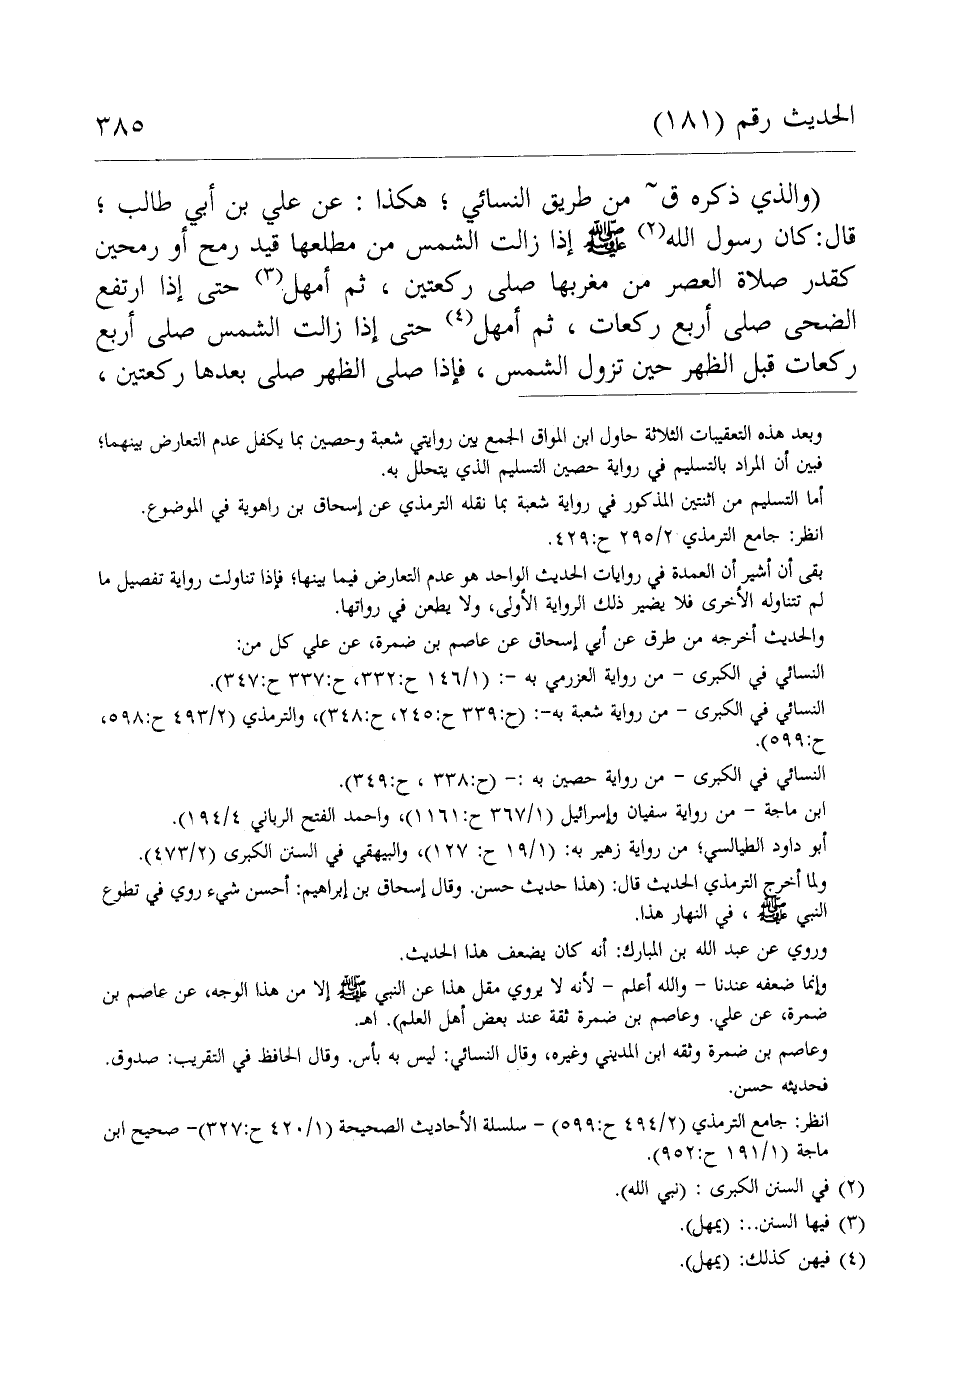 الحديث رقم (١٨١)
٣٨٥
(والذي ذكره ق~ من طريق النسائي ؛ هكذا : عن علي بن أبي طالب ؛
قال: كان رسول الله(٢) ﷺ إذا زالت الشمس من مطلعها قيد رمح أو رمحين
كقدر صلاة العصر من مغربها صلى ركعتين ، ثم أمهل(٣) حتى إذا ارتفع
الضحى صلى أربع ركعات ، ثم أمهل(٤) حتى إذا زالت الشمس صلى أربع
ركعات قبل الظهر حين تزول الشمس ، فإذا صلى الظهر صلى بعدها ركعتين ،
وبعد هذه التعقيبات الثلاثة حاول ابن المواق الجمع بين روايتي شعبة وحصين بما يكفل عدم التعارض بينهما؛
فبين أن المراد بالتسليم في رواية حصين التسليم الذي يتحلل به.
أما التسليم من اثنتين المذكور في رواية شعبة بما نقله الترمذي عن إسحاق بن راهوية في الموضوع.
انظر: جامع الترمذي ٢٩٥/٢ ح:٤٢٩.
بقى أن أشير أن العمدة في روايات الحديث الواحد هو عدم التعارض فيما بينها؛ فإذا تناولت رواية تفصيل ما
لم تتناوله الأخرى فلا يضير ذلك الرواية الأولى، ولا يطعن في رواتها.
والحديث أخرجه من طرق عن أبي إسحاق عن عاصم بن ضمرة، عن علي كل من:
النسائي في الكبرى - من رواية العزرمي به -: (١٤٦/١ ح:٣٣٢، ح:٣٣٧ ح:٣٤٧).
النسائي في الكبرى - من رواية شعبة به-: (ح:٣٣٩ ح:٢٤٥، ح:٣٤٨)، والترمذي (٤٩٣/٢ ح:٥٩٨،
ح:٥٩٩).
النسائي في الكبرى - من رواية حصين به :- (ح:٣٣٨ ، ح:٣٤٩).
ابن ماجة - من رواية سفيان وإسرائيل (٣٦٧/١ ح:١١٦١)، واحمد الفتح الرباني ١٩٤/٤).
أبو داود الطيالسي؛ من رواية زهير به: (١٩/١ ح: ١٢٧)، والبيهقي في السنن الكبرى (٤٧٣/٢).
ولما أخرج الترمذي الحديث قال: (هذا حديث حسن. وقال إسحاق بن إبراهيم: أحسن شيء روي في تطوع
النبي ﷺ ، في النهار هذا.
وروي عن عبد الله بن المبارك: أنه كان يضعف هذا الحديث.
وإنما ضعفه عندنا - والله أعلم - لأنه لا يروي مقل هذا عن النبي ﷺ إلا من هذا الوجه، عن عاصم بن
ضمرة، عن علي. وعاصم بن ضمرة ثقة عند بعض أهل العلم). اهـ.
وعاصم بن ضمرة وثقه ابن المديني وغيره، وقال النسائي: ليس به بأس. وقال الحافظ في التقريب: صدوق.
فحديثه حسن.
انظر: جامع الترمذي (٤٩٤/٢ ح:٥٩٩) - سلسلة الأحاديث الصحيحة (٤٢٠/١ ح:٣٢٧)- صحيح ابن
ماجة (١٩١/١ ح:٩٥٢).
(٢) في السنن الكبرى : (نبي الله).
(٣) فيها السنن..: (يمهل).
(٤) فيهن كذلك: (يمهل).